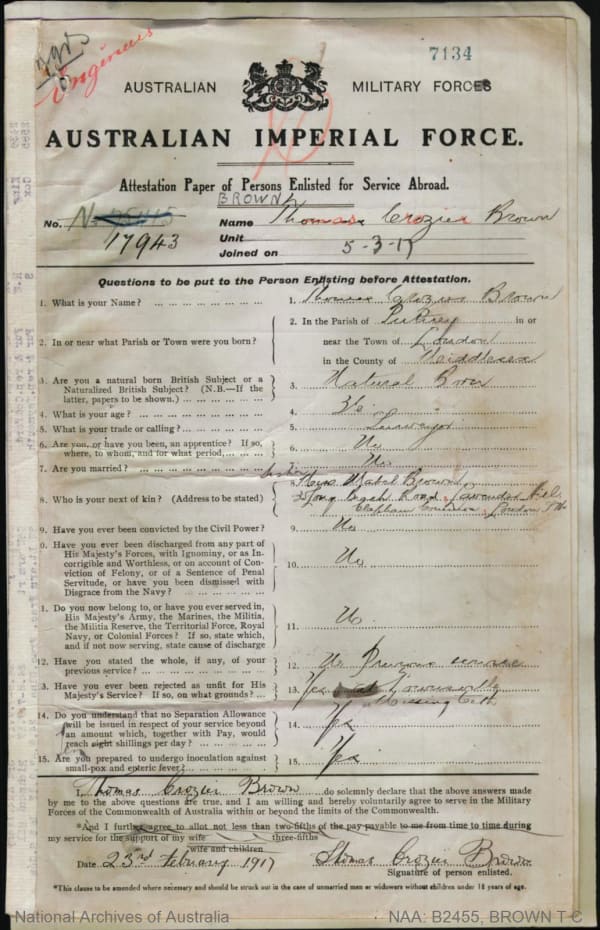 7134
Engineers
AUSTRALIAN MILITARY FORCES
AUSTRALIAN IMPERIAL FORCE.
Attestation Paper of Persons Enlisted for Service Abroad.
BROWN
No. 17943
Name Thomas Crozier Brown
Unit
Joined on 5-3-17
Questions to be put to the Person Enlisting before Attestation.
1. What is your Name? 1. Thomas Crozier Brown
2. In or near what Parish or Town were you born? 2. In the Parish of Putney in or
near the Town of London
in the County of Middlesex
3. Are you a natural born British Subject or a
Naturalized British Subject? (N.B.—If the
latter, papers to be shown.) 3. Natural Born
4. What is your age? 4.
5. What is your trade or calling? 5.
6. Are you, or have you been, an apprentice? If so,
where, to whom, and for what period, 6. No
7. Are you married? No
8. Who is your next of kin? (Address to be stated) 8. Mabel Brown
Road, Cavendish
Clapham Common, London
9. Have you ever been convicted by the Civil Power? 9. No
0. Have you ever been discharged from any part of
His Majesty's Forces, with Ignominy, or as In-
corrigible and Worthless, or on account of Con-
viction of Felony, or of a Sentence of Penal
Servitude, or have you been dismissed with
Disgrace from the Navy? 10. No
1. Do you now belong to, or have you ever served in,
His Majesty's Army, the Marines, the Militia,
the Militia Reserve, the Territorial Force, Royal
Navy, or Colonial Forces? If so, state which,
and if not now serving, state cause of discharge 11. No
12. Have you stated the whole, if any, of your
previous service? 12. No Previous service
3. Have you ever been rejected as unfit for His
Majesty's Service? If so, on what grounds? 13. Yes at
Missing teeth
14. Do you understand that no Separation Allowance
will be issued in respect of your service beyond
an amount which, together with Pay, would
reach eight shillings per day? 14. Yes
15. Are you prepared to undergo inoculation against
small-pox and enteric fever? 15. Yes
I, Thomas Crozier Brown do solemnly declare that the above answers made
by me to the above questions are true, and I am willing and hereby voluntarily agree to serve in the Military
Forces of the Commonwealth of Australia within or beyond the limits of the Commonwealth.
*And I further agree to allot not less than two-fifths of the pay payable to me from time to time during
three-fifths
my service for the support of my wife
wife and children
Date 23rd February 1917 Thomas Crozier Brown
Signature of person enlisted.
*This clause to be amended where necessary and should be struck out in the case of unmarried men or widowers without children under 18 years of age.
National Archives of Australia NAA: B2455, BROWN T C